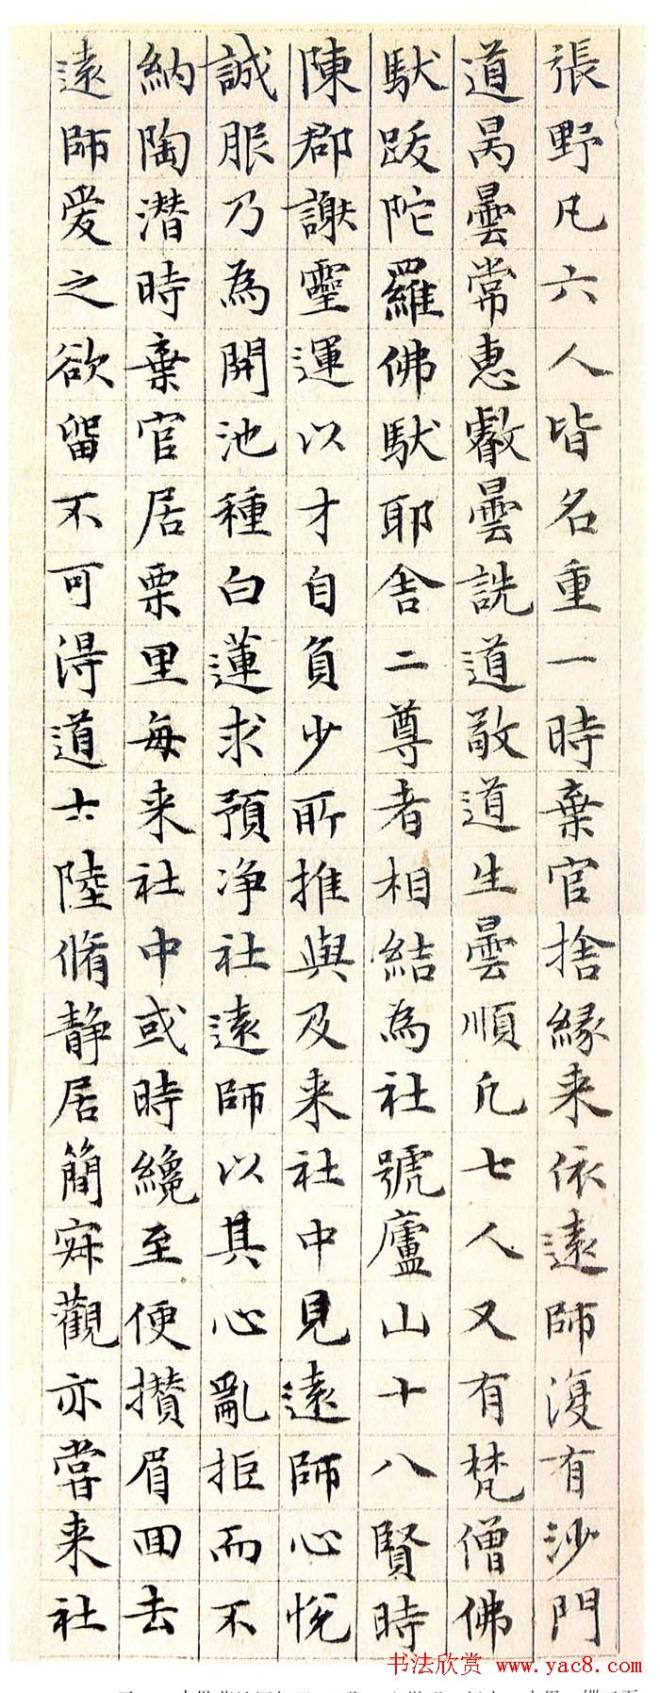 張野凡六人皆名重一時棄官捨緣来依遠師復有沙門
道昺曇常惠叡曇詵道敬道生曇順凡七人又有梵僧佛
馱跋陀羅佛馱耶舍二尊者相結為社號廬山十八賢時
陳郡謝靈運以才自負少所推與及来社中見遠師心悅
誠服乃為開池種白蓮求預净社遠師以其心亂拒而不
納陶潛時棄官居栗里每来社中或時纔至便攅眉回去
遠師愛之欲留不可得道士陸脩静居簡寂觀亦嘗来社
书法欣赏 www.yac8.com